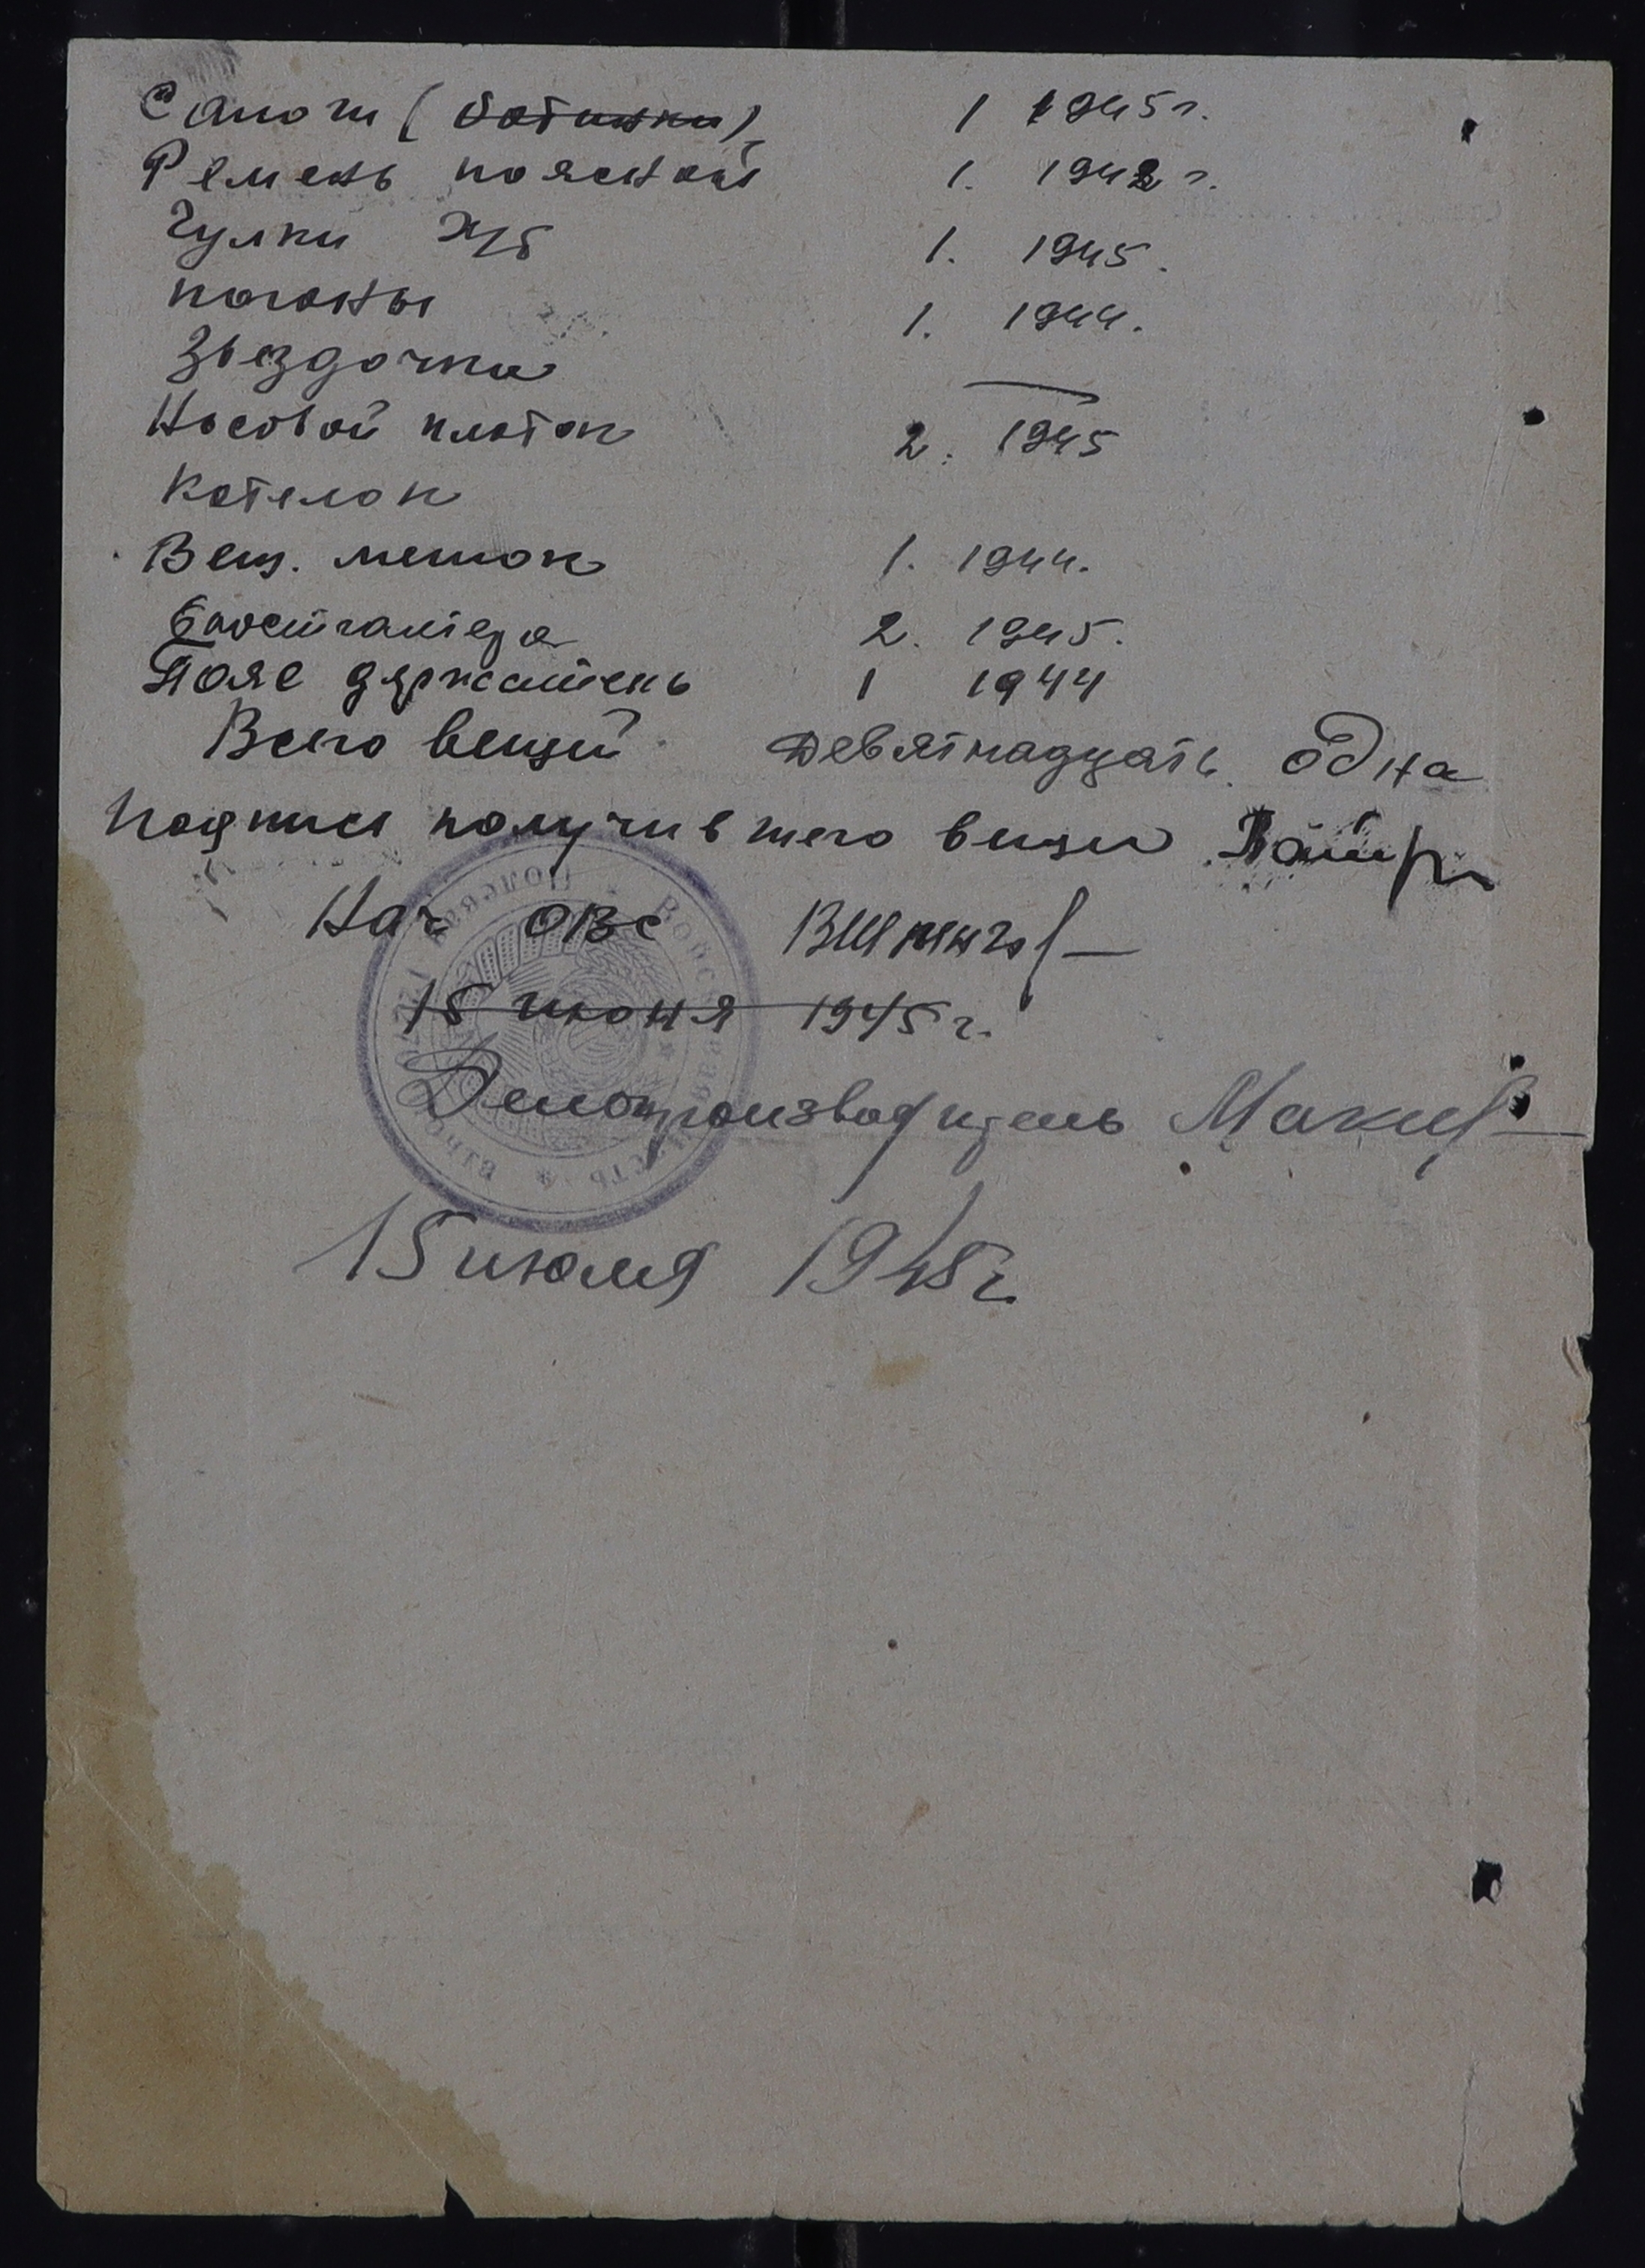 Сапоги (ботинки) 1 1945 г.
Ремень поясной 1. 1942 г.
Чулки х/б 1. 1945.
погоны 1. 1944.
Звездочки —
Носовой платок 2. 1945
Котелок
Вещ. мешок 1. 1944.
Бюстгалтера 2. 1945.
Пояс держатель 1 1944
Всего вещей девятнадцать одна
Подпись получившего вещи
Нач ОВС
15 июня 1945 г.
Делопроизводитель
15 июля 1945 г.
Войсковая часть * Полевая почта